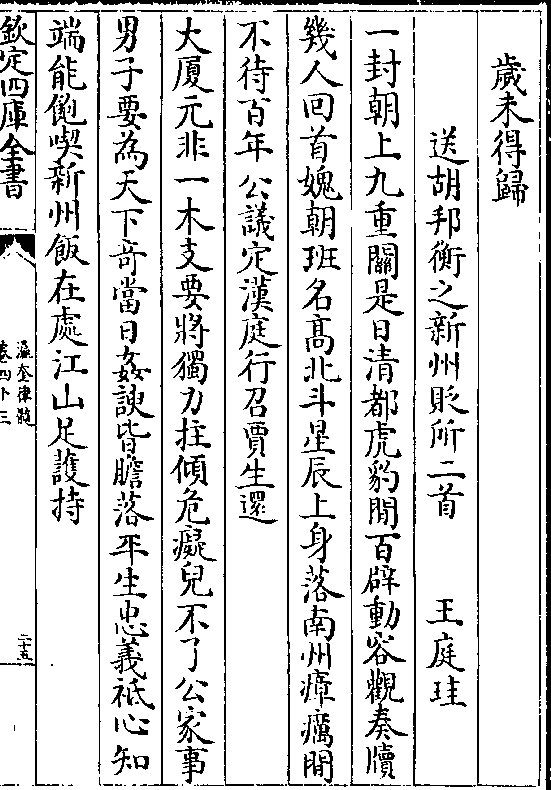 歲未得歸
送胡邦衡之新州貶所二首　王庭珪
一封朝上九重關是日清都虎豹閒百辟動容觀奏牘
幾人回首媿朝班名髙北斗星辰上身落南州瘴癘間
不待百年公議定漢庭行召賈生還
大厦元非一木支要將獨力拄傾危癡兒不了公家事
男子要為天下竒當日姦諛皆膽落平生忠義祗心知
端能飽喫新州飯在處江山足護持
欽定四庫全書
瀛奎律髓
卷四十三
二十五